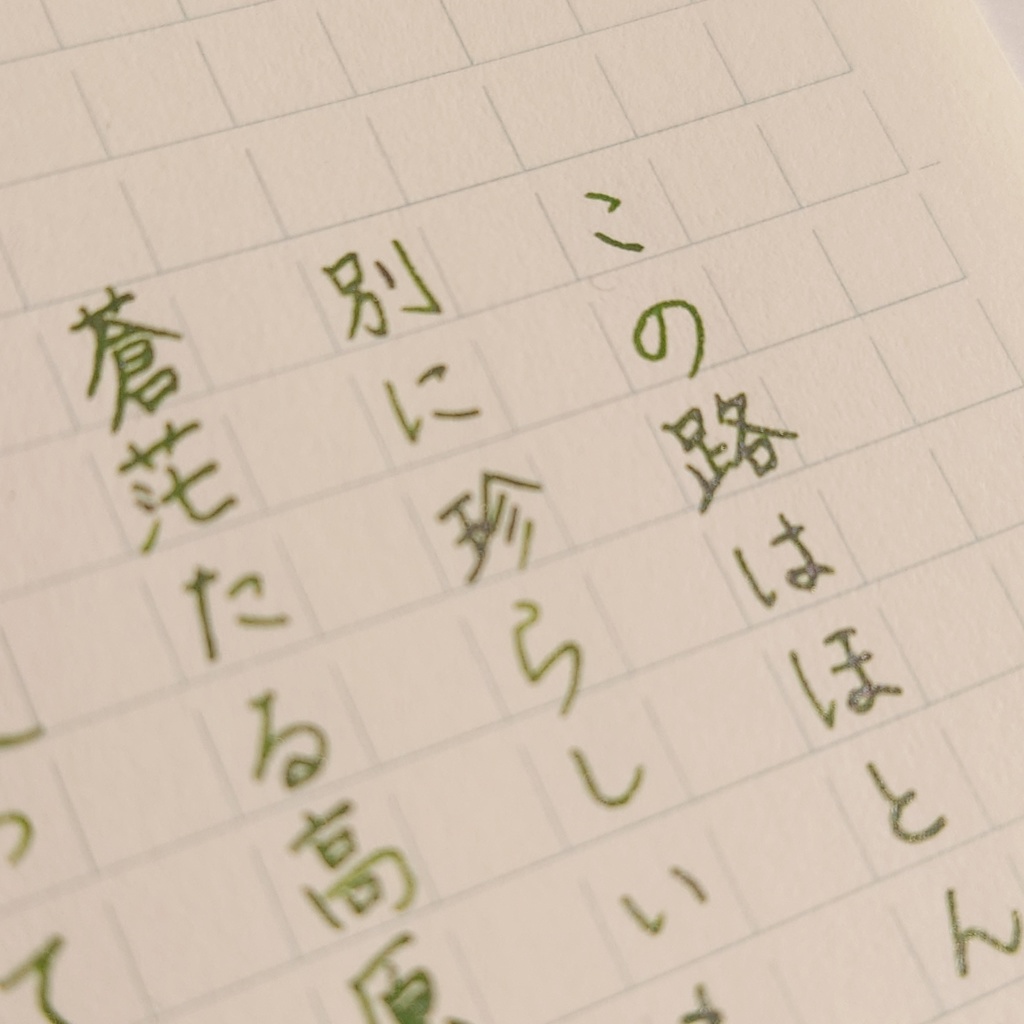 この路はほとん
別に珍らしい
蒼茫たる高原